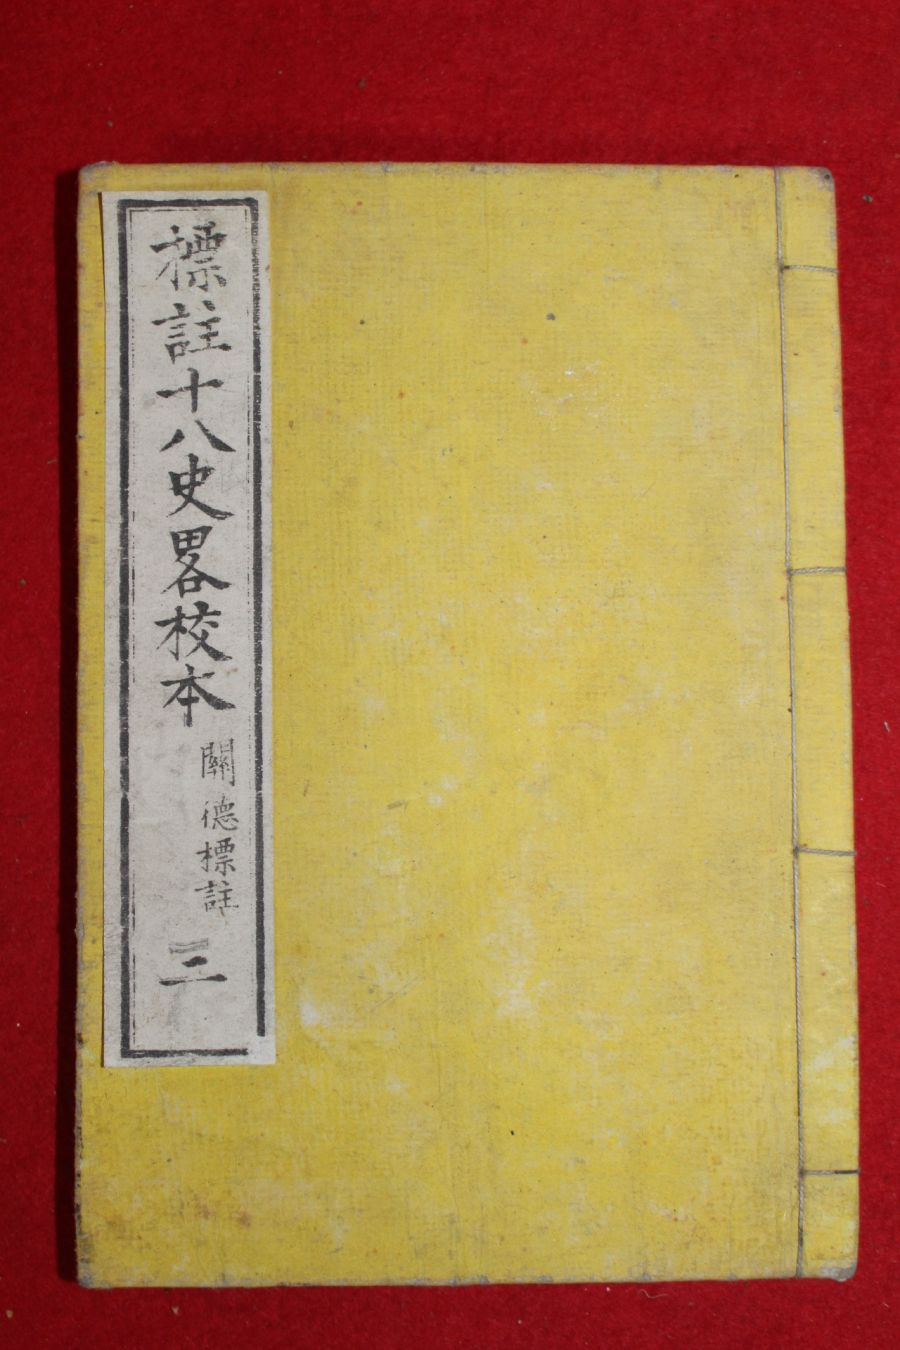 標註十八史畧校本
關德標註
三